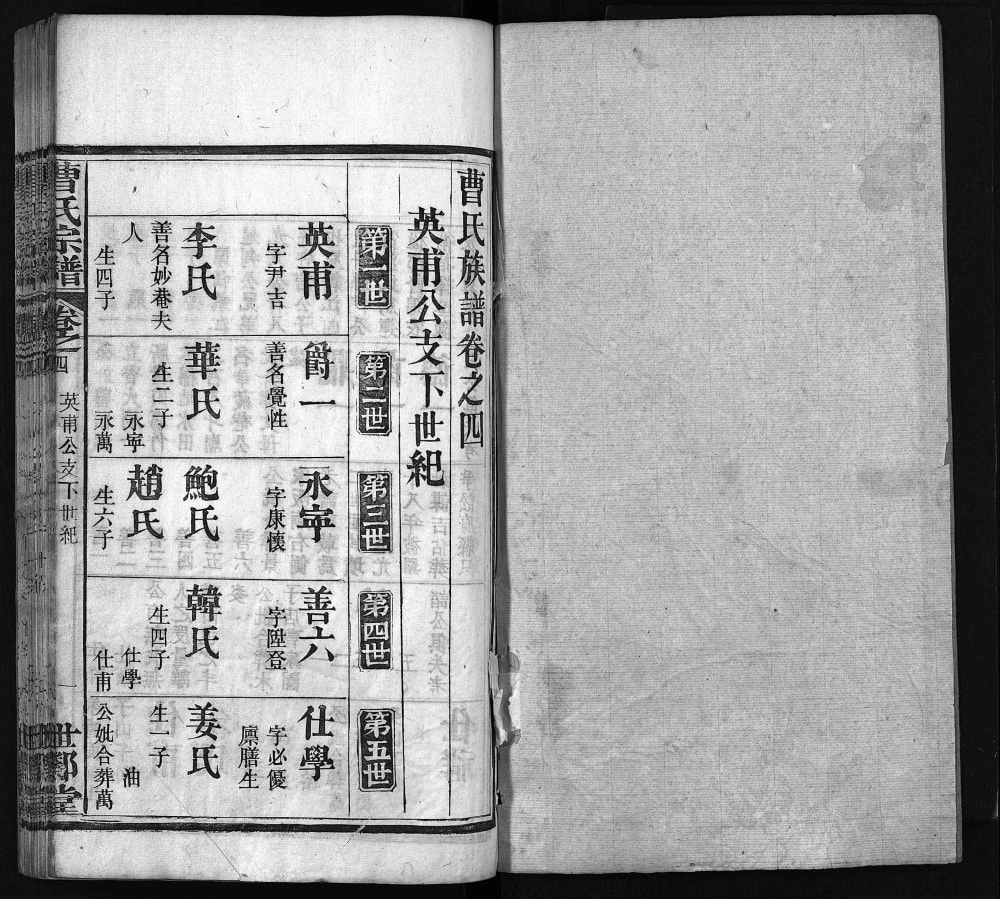 曹氏族譜卷之四
英甫公支下世紀
第一世
第二世
第三世
第四世
第五世
英甫
字尹吉
李氏
善名妙菴夫
人
生四子
爵一
善名覺性
華氏
生二子
永寧
永萬
永寧
字康懷
鮑氏
趙氏
生六子
善六
字陞登
韓氏
生四子
仕學
仕甫
仕學
字必優
廪膳生
姜氏
生一子
油
公妣合葬萬
曹氏宗譜
卷之四
英甫公支下世紀
一